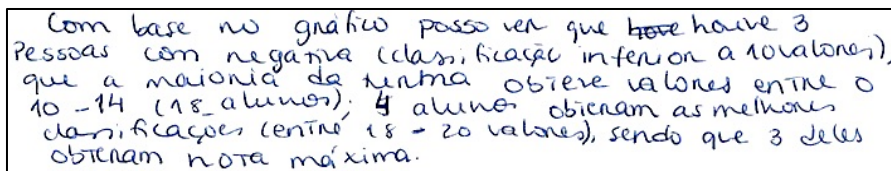 Com base no gráfico posso ver que houve 3
Pessoas com negativa (classificação inferior a 10 valores),
que a maioria da turma obteve valores entre o
10-14 (18 alunos); 4 alunos obteram as melhores
classificações (entre 18-20 valores), sendo que 3 deles
obteram nota máxima.